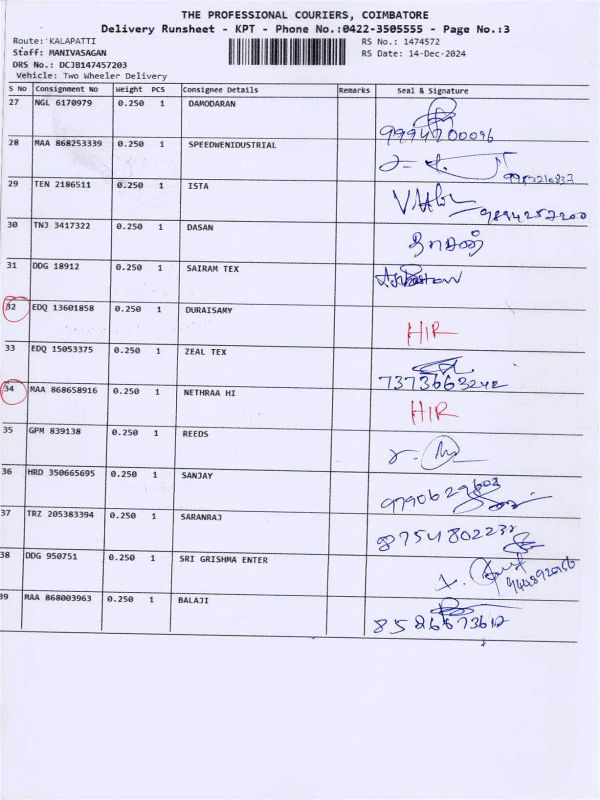 THE PROFESSIONAL COURIERS, COIMBATORE
Delivery Runsheet - KPT - Phone No.:0422-3505555 - Page No.:3
Route: KALAPATTI RS No.: 1474572
Staff: MANIVASAGAN RS Date: 14-Dec-2024
DRS No.: DCJB147457203
Vehicle: Two Wheeler Delivery
S No Consignment No Weight PCS Consignee Details Remarks Seal & Signature
27 NGL 6170979 0.250 1 DAMODARAN
28 MAA 868253339 0.250 1 SPEEDWENIDUSTRIAL
29 TEN 2186511 0.250 1 ISTA 9894257200
30 TNJ 3417322 0.250 1 DASAN தாசன்
31 DDG 18912 0.250 1 SAIRAM TEX
32 EDQ 13601858 0.250 1 DURAISAMY HIR
33 EDQ 15053375 0.250 1 ZEAL TEX 7373663242
34 MAA 868658916 0.250 1 NETHRAA HI HIR
35 GPM 839138 0.250 1 REEDS
36 HRD 350665695 0.250 1 SANJAY 9790629603
37 TRZ 205383394 0.250 1 SARANRAJ 8754802232
38 DDG 950751 0.250 1 SRI GRISHMA ENTER
39 MAA 868003963 0.250 1 BALAJI 8526673612